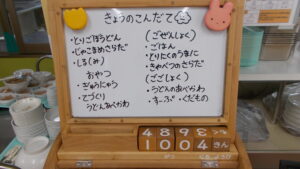 きょうのこんだて
・とりごぼうどん
・じゃこまめさらだ
・しる(み)
おやつ
・ぎゅうにゅう
・てづくり
うどんあべかわ
(ごぜんしょく)
・ごはん
・とりにくのうまに
・きゃべつのさらだ
(ごごしょく)
・うどんのあべかわ
・すーぷ ・くだもの
489
1004